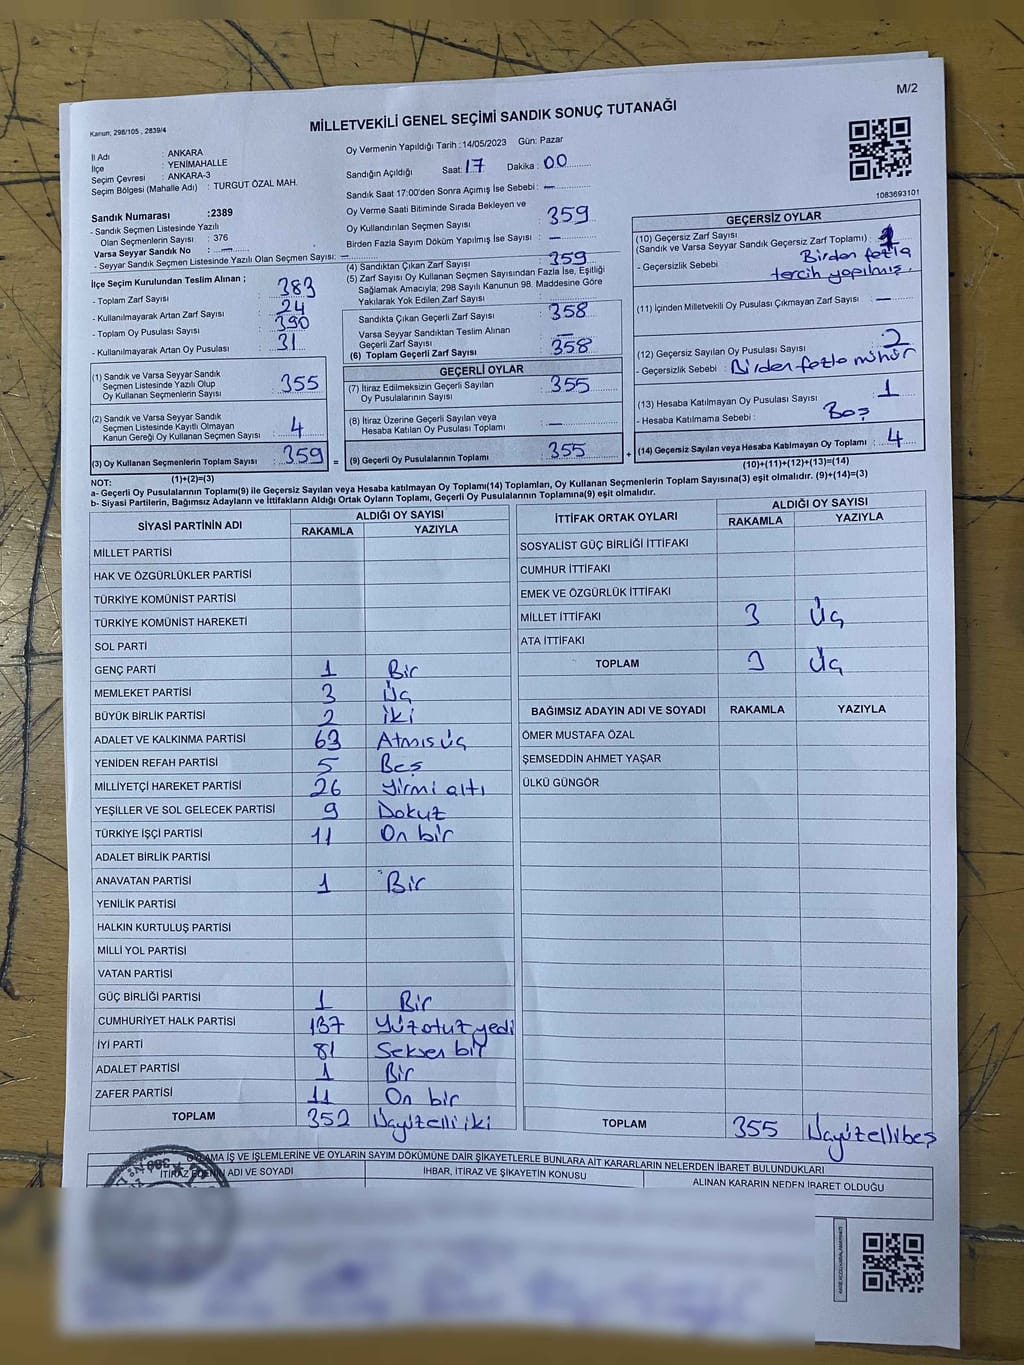 M/2
Kanun, 298/105 , 2839/4
MİLLETVEKİLİ GENEL SEÇİMİ SANDIK SONUÇ TUTANAĞI
İl Adı : ANKARA
İlçe : YENİMAHALLE
Seçim Çevresi : ANKARA-3
Seçim Bölgesi (Mahalle Adı) : TURGUT ÖZAL MAH.
Sandık Numarası :2389
- Sandık Seçmen Listesinde Yazılı
Olan Seçmenlerin Sayısı : 376
Varsa Seyyar Sandık No : —
- Seyyar Sandık Seçmen Listesinde Yazılı Olan Seçmen Sayısı: —
Oy Vermenin Yapıldığı Tarih :14/05/2023 Gün: Pazar
Sandığın Açıldığı Saat: 17 Dakika : 00
Sandık Saat 17:00'den Sonra Açımış İse Sebebi : —
Oy Verme Saati Bitiminde Sırada Bekleyen ve
Oy Kullandırılan Seçmen Sayısı : 359
Birden Fazla Sayım Döküm Yapılmış İse Sayısı : —
1083693101
İlçe Seçim Kurulundan Teslim Alınan ;
- Toplam Zarf Sayısı : 383
- Kullanılmayarak Artan Zarf Sayısı : 24
- Toplam Oy Pusulası Sayısı : 390
- Kullanılmayarak Artan Oy Pusulası : 31
(1) Sandık ve Varsa Seyyar Sandık
Seçmen Listesinde Yazılı Olup
Oy Kullanan Seçmenlerin Sayısı : 355
(2) Sandık ve Varsa Seyyar Sandık
Seçmen Listesinde Kayıtlı Olmayan
Kanun Gereği Oy Kullanan Seçmen Sayısı : 4
(3) Oy Kullanan Seçmenlerin Toplam Sayısı : 359 =
(1)+(2)=(3)
(4) Sandıktan Çıkan Zarf Sayısı : 359
(5) Zarf Sayısı Oy Kullanan Seçmen Sayısından Fazla İse, Eşitliği
Sağlamak Amacıyla; 298 Sayılı Kanunun 98. Maddesine Göre
Yakılarak Yok Edilen Zarf Sayısı :
Sandıkta Çıkan Geçerli Zarf Sayısı : 358
Varsa Seyyar Sandıktan Teslim Alınan
Geçerli Zarf Sayısı : —
(6) Toplam Geçerli Zarf Sayısı : 358
GEÇERLİ OYLAR
(7) İtiraz Edilmeksizin Geçerli Sayılan
Oy Pusulalarının Sayısı : 355
(8) İtiraz Üzerine Geçerli Sayılan veya
Hesaba Katılan Oy Pusulası Toplamı : —
(9) Geçerli Oy Pusulalarının Toplamı : 355 +
GEÇERSİZ OYLAR
(10) Geçersiz Zarf Sayısı
(Sandık ve Varsa Seyyar Sandık Geçersiz Zarf Toplamı) : 1
- Geçersizlik Sebebi : Birden fazla
tercih yapılmış.
(11) İçinden Milletvekili Oy Pusulası Çıkmayan Zarf Sayısı : —
(12) Geçersiz Sayılan Oy Pusulası Sayısı : 2
- Geçersizlik Sebebi : Birden fazla mühür
(13) Hesaba Katılmayan Oy Pusulası Sayısı : 1
- Hesaba Katılmama Sebebi : Boş
(14) Geçersiz Sayılan veya Hesaba Katılmayan Oy Toplamı : 4
(10)+(11)+(12)+(13)=(14)
NOT:
a- Geçerli Oy Pusulalarının Toplamı(9) ile Geçersiz Sayılan veya Hesaba katılmayan Oy Toplamı(14) Toplamları, Oy Kullanan Seçmenlerin Toplam Sayısına(3) eşit olmalıdır. (9)+(14)=(3)
b- Siyasi Partilerin, Bağımsız Adayların ve İttifakların Aldığı Ortak Oyların Toplamı, Geçerli Oy Pusulalarının Toplamına(9) eşit olmalıdır.
SİYASİ PARTİNİN ADI ALDIĞI OY SAYISI
RAKAMLA YAZIYLA
MİLLET PARTİSİ
HAK VE ÖZGÜRLÜKLER PARTİSİ
TÜRKİYE KOMÜNİST PARTİSİ
TÜRKİYE KOMÜNİST HAREKETİ
SOL PARTİ
GENÇ PARTİ 1 Bir
MEMLEKET PARTİSİ 3 Üç
BÜYÜK BİRLİK PARTİSİ 2 iki
ADALET VE KALKINMA PARTİSİ 63 Atmış üç
YENİDEN REFAH PARTİSİ 5 Beş
MİLLİYETÇİ HAREKET PARTİSİ 26 yirmi altı
YEŞİLLER VE SOL GELECEK PARTİSİ 9 Dokuz
TÜRKİYE İŞÇİ PARTİSİ 11 On bir
ADALET BİRLİK PARTİSİ
ANAVATAN PARTİSİ 1 Bir
YENİLİK PARTİSİ
HALKIN KURTULUŞ PARTİSİ
MİLLİ YOL PARTİSİ
VATAN PARTİSİ
GÜÇ BİRLİĞİ PARTİSİ 1 Bir
CUMHURİYET HALK PARTİSİ 137 Yüzotuzyedi
İYİ PARTİ 81 Seksen bir
ADALET PARTİSİ 1 Bir
ZAFER PARTİSİ 11 On bir
TOPLAM 352 Üçyüzelli iki
İTTİFAK ORTAK OYLARI ALDIĞI OY SAYISI
RAKAMLA YAZIYLA
SOSYALİST GÜÇ BİRLİĞİ İTTİFAKI
CUMHUR İTTİFAKI
EMEK VE ÖZGÜRLÜK İTTİFAKI
MİLLET İTTİFAKI 3 Üç
ATA İTTİFAKI
TOPLAM 3 Üç
BAĞIMSIZ ADAYIN ADI VE SOYADI RAKAMLA YAZIYLA
ÖMER MUSTAFA ÖZAL
ŞEMSEDDİN AHMET YAŞAR
ÜLKÜ GÜNGÖR
TOPLAM 355 Üçyüzellibeş
OYLAMA İŞ VE İŞLEMLERİNE VE OYLARIN SAYIM DÖKÜMÜNE DAİR ŞİKAYETLERLE BUNLARA AİT KARARLARIN NELERDEN İBARET BULUNDUKLARI
İTİRAZ EDENİN ADI VE SOYADI İHBAR, İTİRAZ VE ŞİKAYETİN KONUSU ALINAN KARARIN NEDEN İBARET OLDUĞU